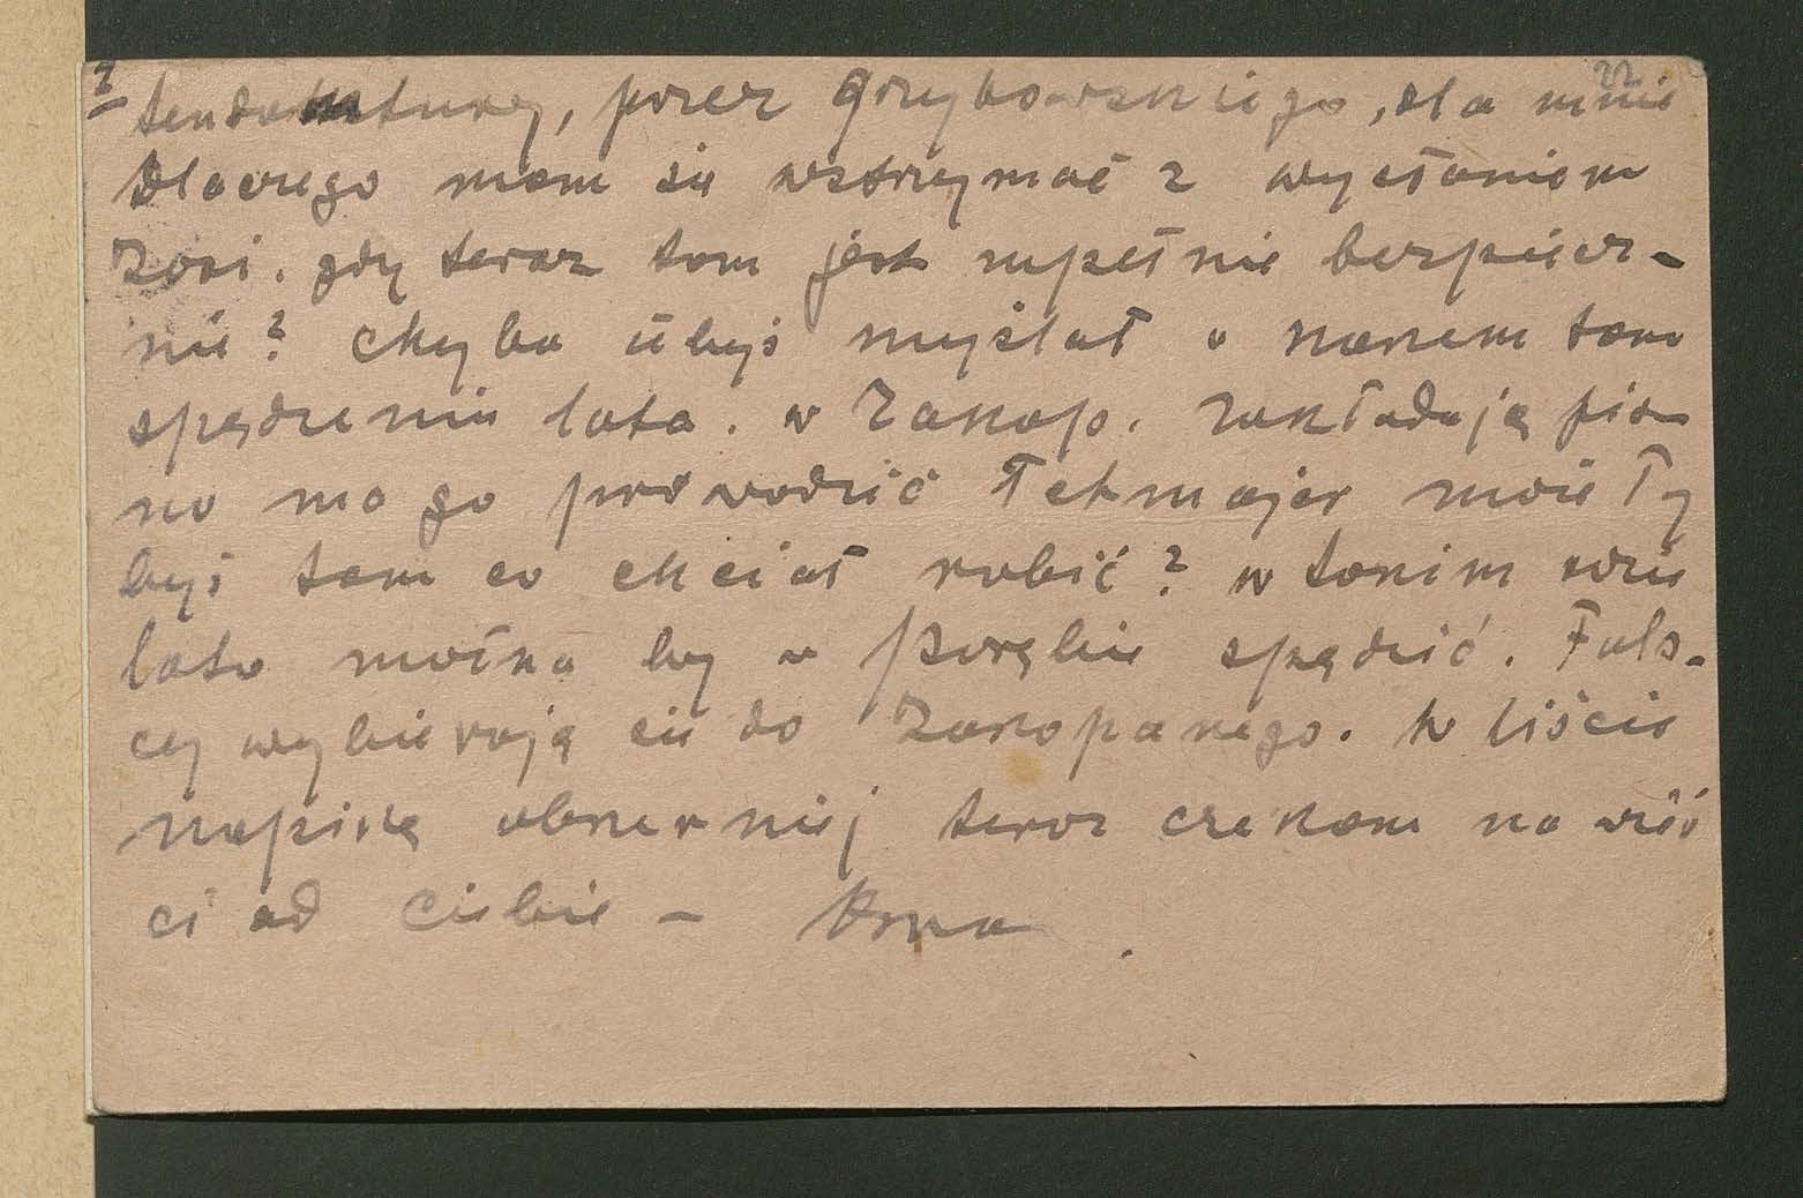 2
22
tendantury, przez Grzybowskiego, dla mnie
Dlaczego mam się wstrzymać z wysłaniem
Zosi. gdy teraz tam jest zupełnie bezpiecz-
nie? Chyba żebyś myślał o naszem tam
spędzeniu lata. w Zakop. zakładają pis
mo ma go prowadzić Tetmajer może Ty
byś tam co chciał robić? w takim razie
lato można by w Porębie spędzić. Fals-
cy wybierają się do Zakopanego. W liście
napiszę obszerniej teraz czekam na wieś
ci od Ciebie –